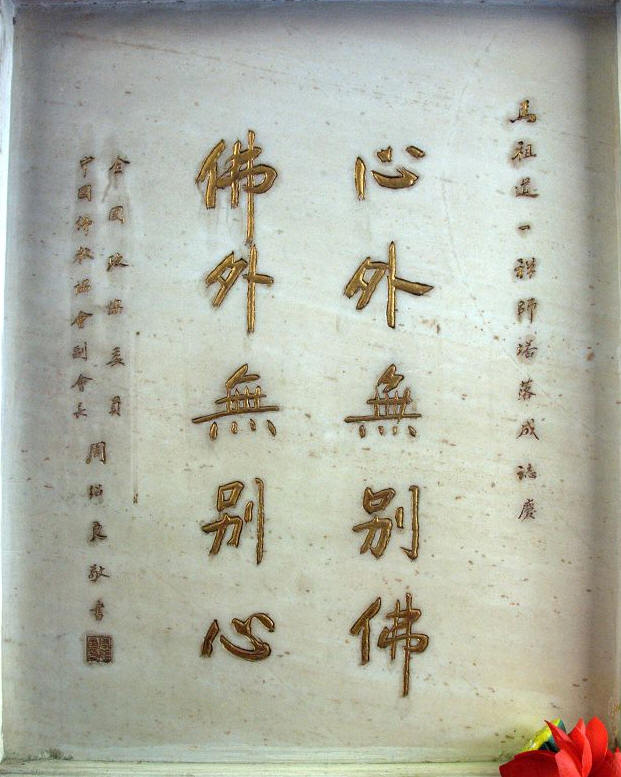 馬祖道一禅師塔落成誌慶
心外無别佛
佛外無别心
全国政協委員
中国佛教協會副會長
周紹良敬書